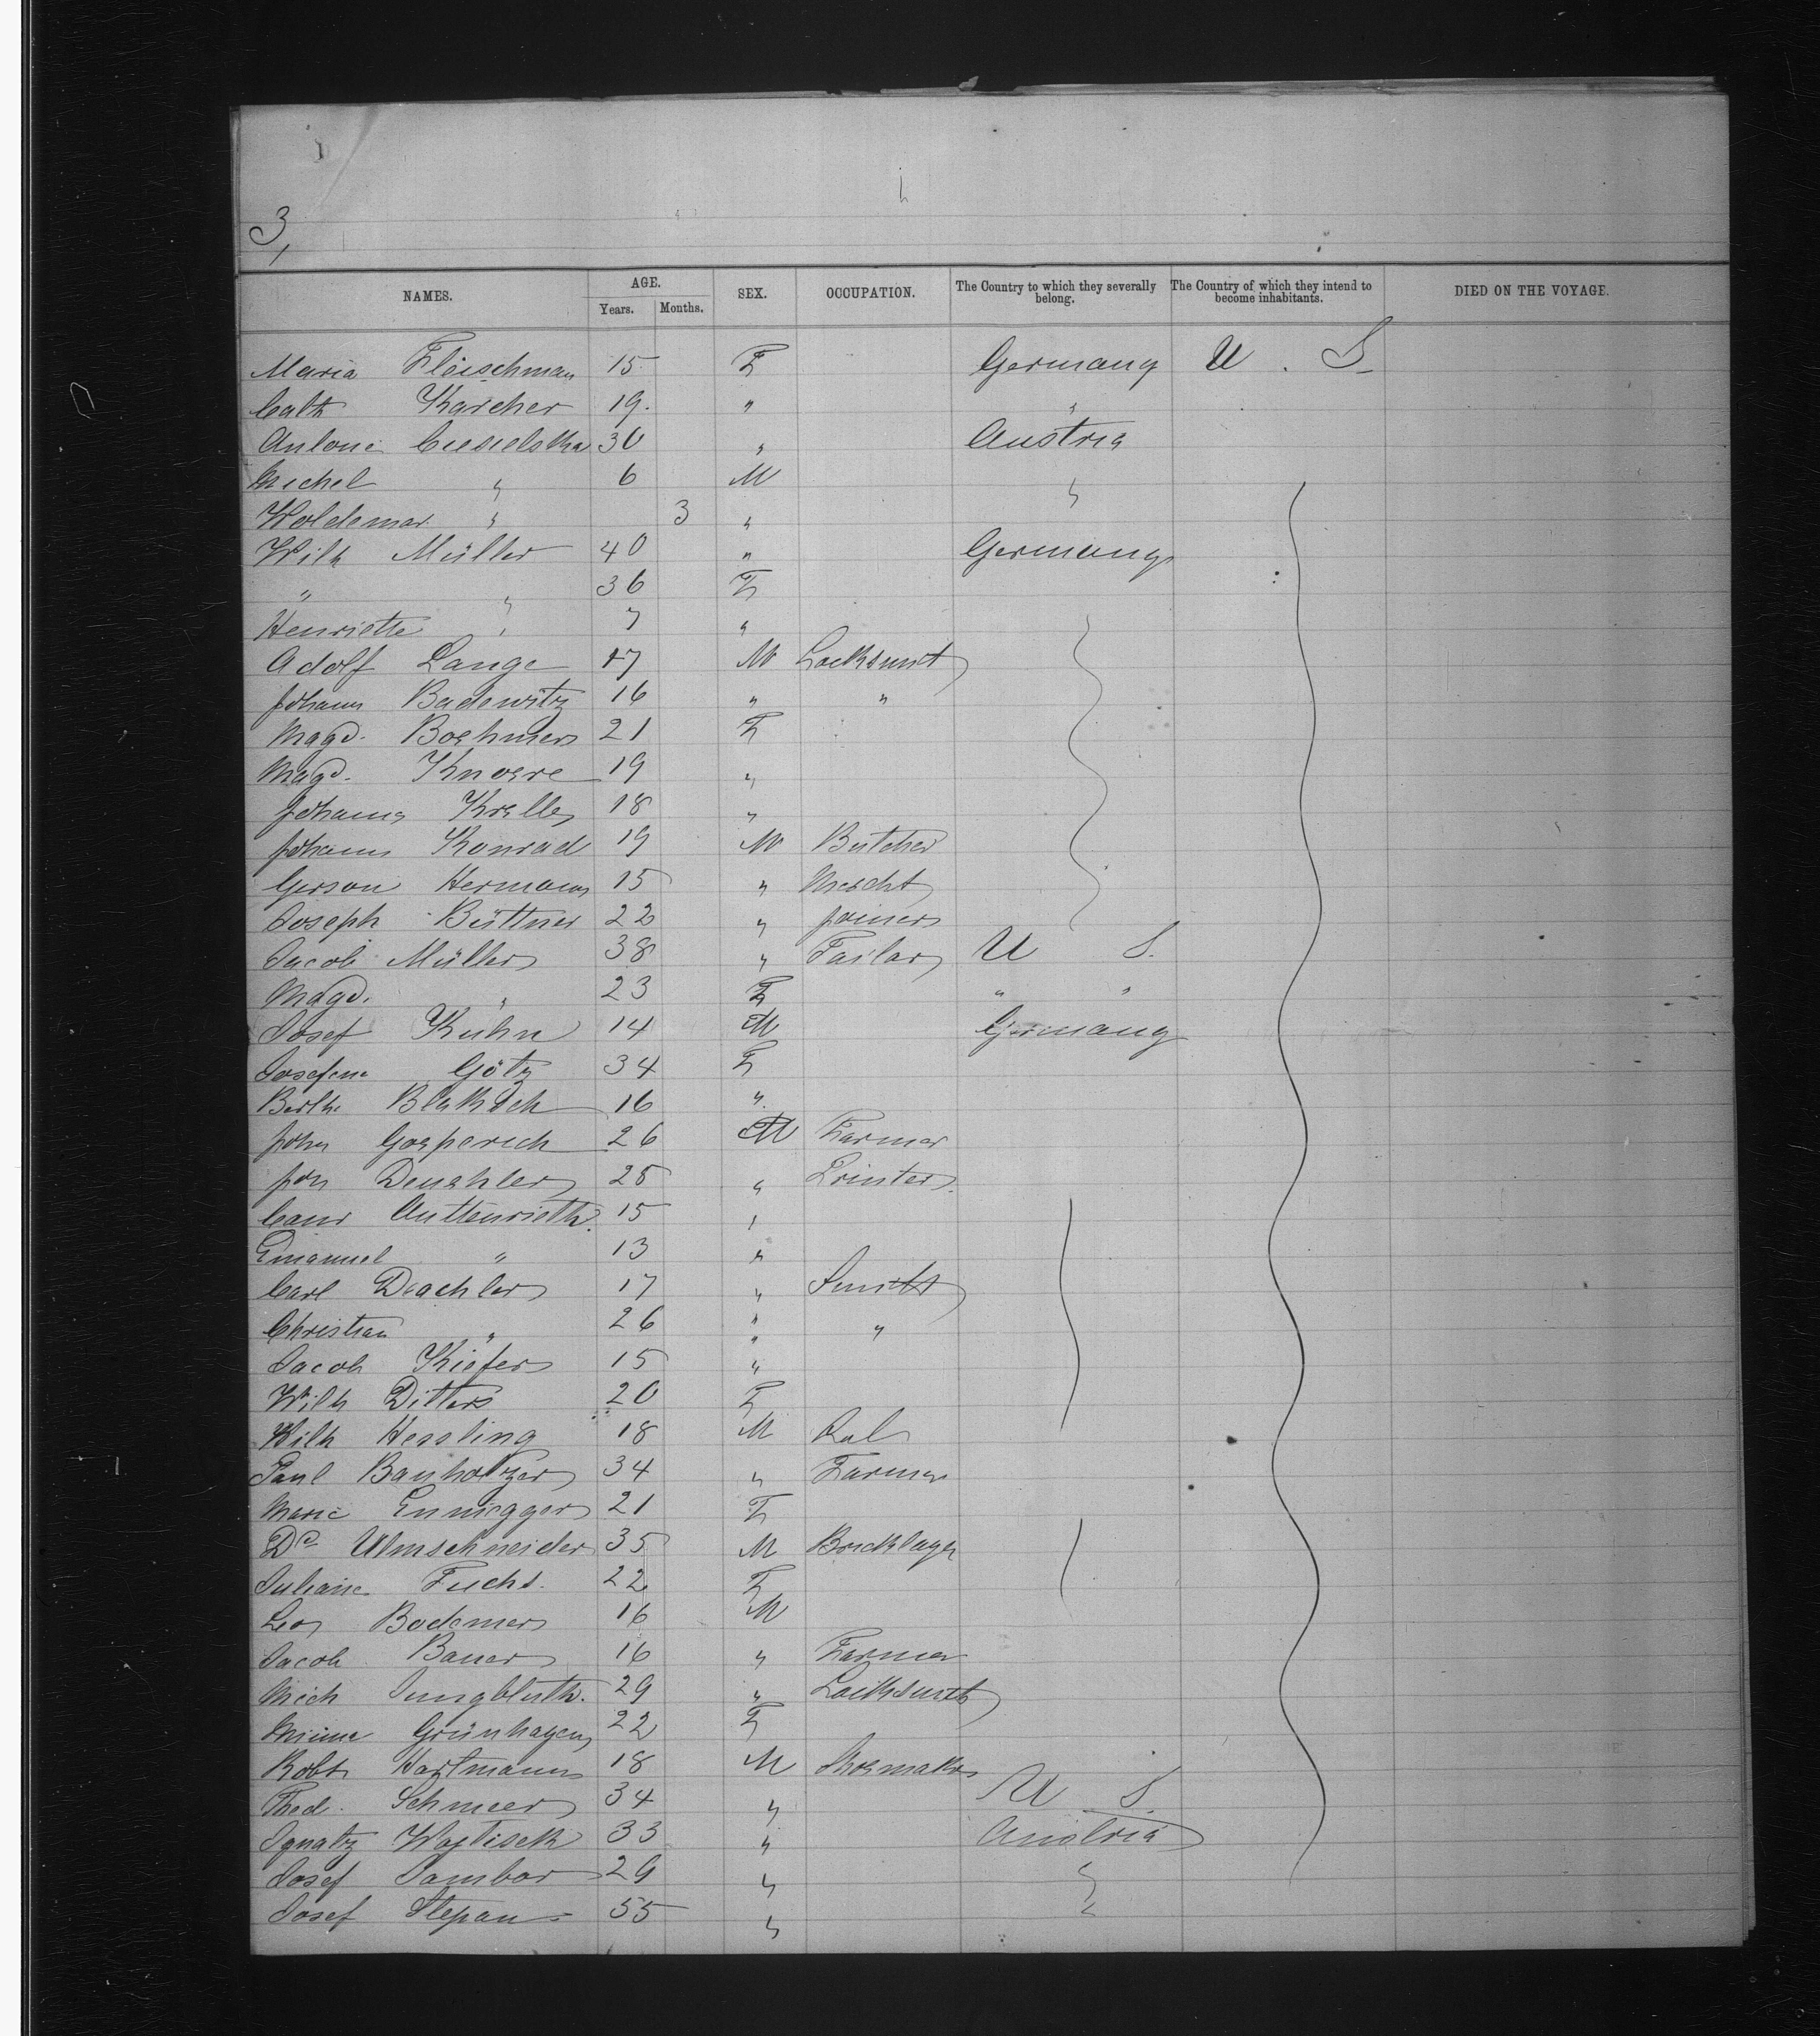 3
NAMES. AGE. SEX. OCCUPATION. The Country to which they severally belong. The Country of which they intend to become inhabitants. DIED ON THE VOYAGE.
Years. Months.
Maria Fleischman 15 F Germany U. S.
Cath Karcher 19. " "
Antoni Ciesielska 30 " Austria
Michel " 6 M "
Woldemar " 3 "
Wilh Müller 40 " Germany
" " 36 F
Henriette " 7 "
Adolf Lange 17 M Locksmit
Johann Badewitz 16 " "
Magd. Boehmer 21 F
Magd. Knoere 19 "
Johanna Krelle 18 "
Johann Konrad 19 M Butcher
Gerson Hermann 15 " Mercht
Joseph Büttner 22 " joiner
Jacob Müller 38 " Tailor U S.
Magd. " 23 F " "
Josef Kuhn 14 M Germany
Josefine Götz 34 F
Berth. 16 "
John Gosperich 26 M Farmer
Deushler 25 " Printer
Auttenrieth. 15 "
Emanuel " 13 "
Carl Drachler 17 " Smith
Christian " 26 " "
Jacob Kiefer 15 "
Wilh Ditters 20 F
Wilh Hessling 18 M Lab
Paul Banholzer 34 " Farmer
Marie Enniegger 21 F
Dc Ulmschneider 35 M Bricklayer
Juliane Fuchs. 22 F
Leo Bodemer 16 M
Jacob Bauer 16 " Farmer
Mich Jungbluth. 29 " Locksmith
Minna Grünhagen 22 F
Robt Hartmann 18 M Shoemaker
Fred. Schmeer 34 " U S.
Ignatz Wojtisek 33 " Austria
Josef Jambor 29 " "
Josef Stepan 55 " "